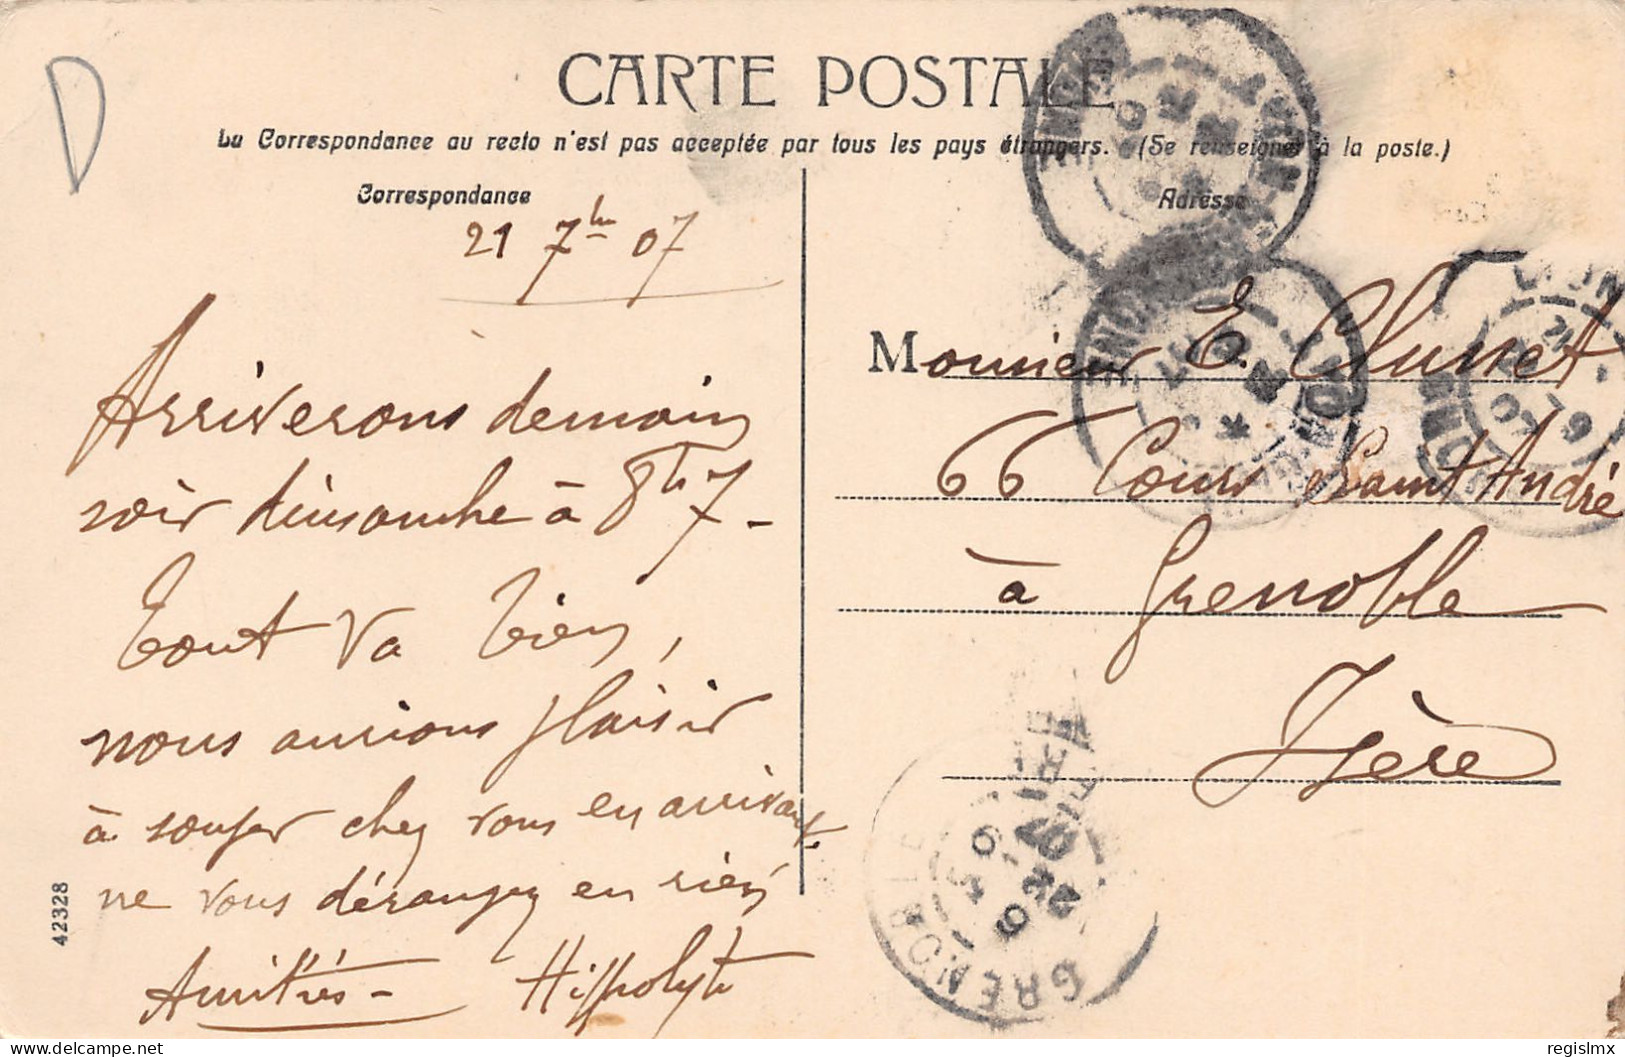 D
CARTE POSTALE
La Correspondance au recto n'est pas acceptée par tous les pays étrangers. (Se renseigner à la poste.)
Correspondance
21 7bre 07
Arriverons demain
soir dimanche à 8h 7 -
Tout va bien,
nous aurions plaisir
à souper chez vous en arrivant.
ne vous dérangez en rien
Amitiés - Hippolyte
42328
Adresse
Monsieur E. Clunet
66 Cours Saint André
à Grenoble
Isère
LYON
LYON
GRENOBLE
ISERE
delcampe.net
regislmx